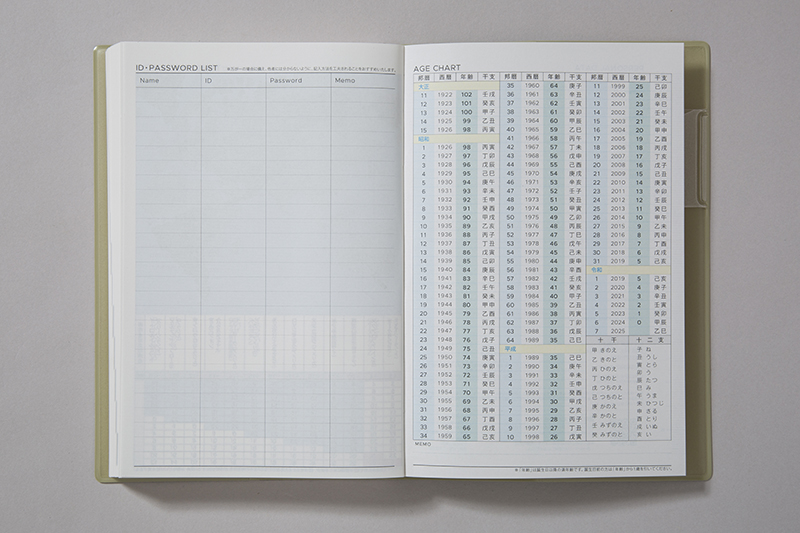 ID・PASSWORD LIST
Name ID Password Memo
AGE CHART
邦暦 西暦 年齢 干支 邦暦 西暦 年齢 干支 邦暦 西暦 年齢 干支
大正
11 1922 102 壬戌
12 1923 101 癸亥
13 1924 100 甲子
14 1925 99 乙丑
15 1926 98 丙寅
昭和
1 1926 98 丙寅
2 1927 97 丁卯
3 1928 96 戊辰
4 1929 95 己巳
5 1930 94 庚午
6 1931 93 辛未
7 1932 92 壬申
8 1933 91 癸酉
9 1934 90 甲戌
10 1935 89 乙亥
11 1936 88 丙子
12 1937 87 丁丑
13 1938 86 戊寅
14 1939 85 己卯
15 1940 84 庚辰
16 1941 83 辛巳
17 1942 82 壬午
18 1943 81 癸未
19 1944 80 甲申
20 1945 79 乙酉
21 1946 78 丙戌
22 1947 77 丁亥
23 1948 76 戊子
24 1949 75 己丑
25 1950 74 庚寅
26 1951 73 辛卯
27 1952 72 壬辰
28 1953 71 癸巳
29 1954 70 甲午
30 1955 69 乙未
31 1956 68 丙申
32 1957 67 丁酉
33 1958 66 戊戌
34 1959 65 己亥
35 1960 64 庚子
36 1961 63 辛丑
37 1962 62 壬寅
38 1963 61 癸卯
39 1964 60 甲辰
40 1965 59 乙巳
41 1966 58 丙午
42 1967 57 丁未
43 1968 56 戊申
44 1969 55 己酉
45 1970 54 庚戌
46 1971 53 辛亥
47 1972 52 壬子
48 1973 51 癸丑
49 1974 50 甲寅
50 1975 49 乙卯
51 1976 48 丙辰
52 1977 47 丁巳
53 1978 46 戊午
54 1979 45 己未
55 1980 44 庚申
56 1981 43 辛酉
57 1982 42 壬戌
58 1983 41 癸亥
59 1984 40 甲子
60 1985 39 乙丑
61 1986 38 丙寅
62 1987 37 丁卯
63 1988 36 戊辰
64 1989 35 己巳
平成
1 1989 35 己巳
2 1990 34 庚午
3 1991 33 辛未
4 1992 32 壬申
5 1993 31 癸酉
6 1994 30 甲戌
7 1995 29 乙亥
8 1996 28 丙子
9 1997 27 丁丑
10 1998 26 戊寅
11 1999 25 己卯
12 2000 24 庚辰
13 2001 23 辛巳
14 2002 22 壬午
15 2003 21 癸未
16 2004 20 甲申
17 2005 19 乙酉
18 2006 18 丙戌
19 2007 17 丁亥
20 2008 16 戊子
21 2009 15 己丑
22 2010 14 庚寅
23 2011 13 辛卯
24 2012 12 壬辰
25 2013 11 癸巳
26 2014 10 甲午
27 2015 9 乙未
28 2016 8 丙申
29 2017 7 丁酉
30 2018 6 戊戌
31 2019 5 己亥
令和
1 2019 5 己亥
2 2020 4 庚子
3 2021 3 辛丑
4 2022 2 壬寅
5 2023 1 癸卯
6 2024 0 甲辰
7 2025 乙巳
十干
甲 きのえ
乙 きのと
丙 ひのえ
丁 ひのと
戊 つちのえ
己 つちのと
庚 かのえ
辛 かのと
壬 みずのえ
癸 みずのと
十二支
子 ね
丑 うし
寅 とら
卯 う
辰 たつ
巳 み
午 うま
未 ひつじ
申 さる
酉 とり
戌 いぬ
亥 い
MEMO
※「年齢」は誕生日以降の満年齢です。誕生日前の方は「年齢」から1歳を引いてください。